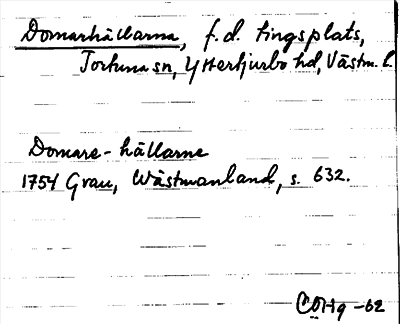 Domarhällarna, f.d. tingsplats,
Tortuna sn, Ytterjurbo hd, Västm. l.
Domare-hällarne
1754 Grau, Wästmanland, s. 632.
COHg -62